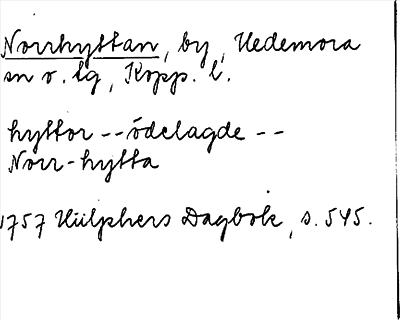 Norrhyttan, by, Hedemora
sn o. lg, Kopp. l.
hyttor -- ödelagde --
Norr-hytta
1757 Hülphers Dagbok, s. 545.